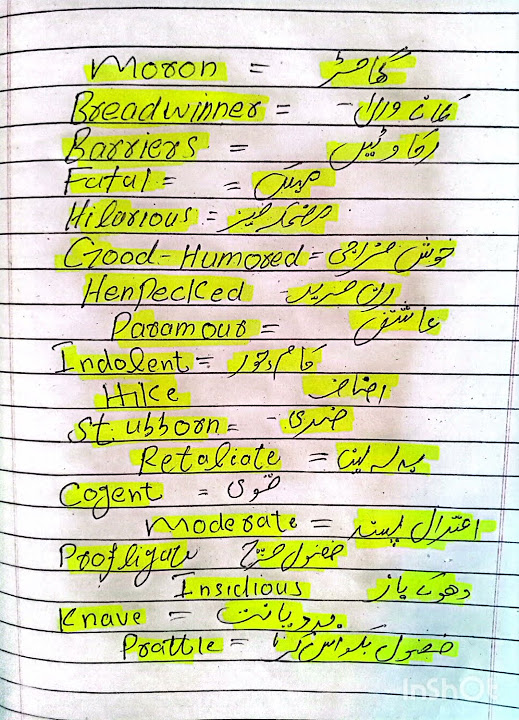 Moron = گامڑ
Breadwinner = کمانے والا -
Barriers = رکاوٹیں
Fatal = = مہلک
Hilarious = مضحکہ خیز
Good-Humored = خوش مزاجی
Henpecked زن مرید -
Paramour = عاشق
Indolent = کام چور
Hike اضافہ
Stubborn = ضدی -
Retaliate = بدلہ لینا
Cogent = قوی
Moderate = اعتدال پسند
Profligate فضول خرچ
Insidious دھوکے باز
Knave = بددیانت
Prattle = فضول بکواس کرنا
InShOt